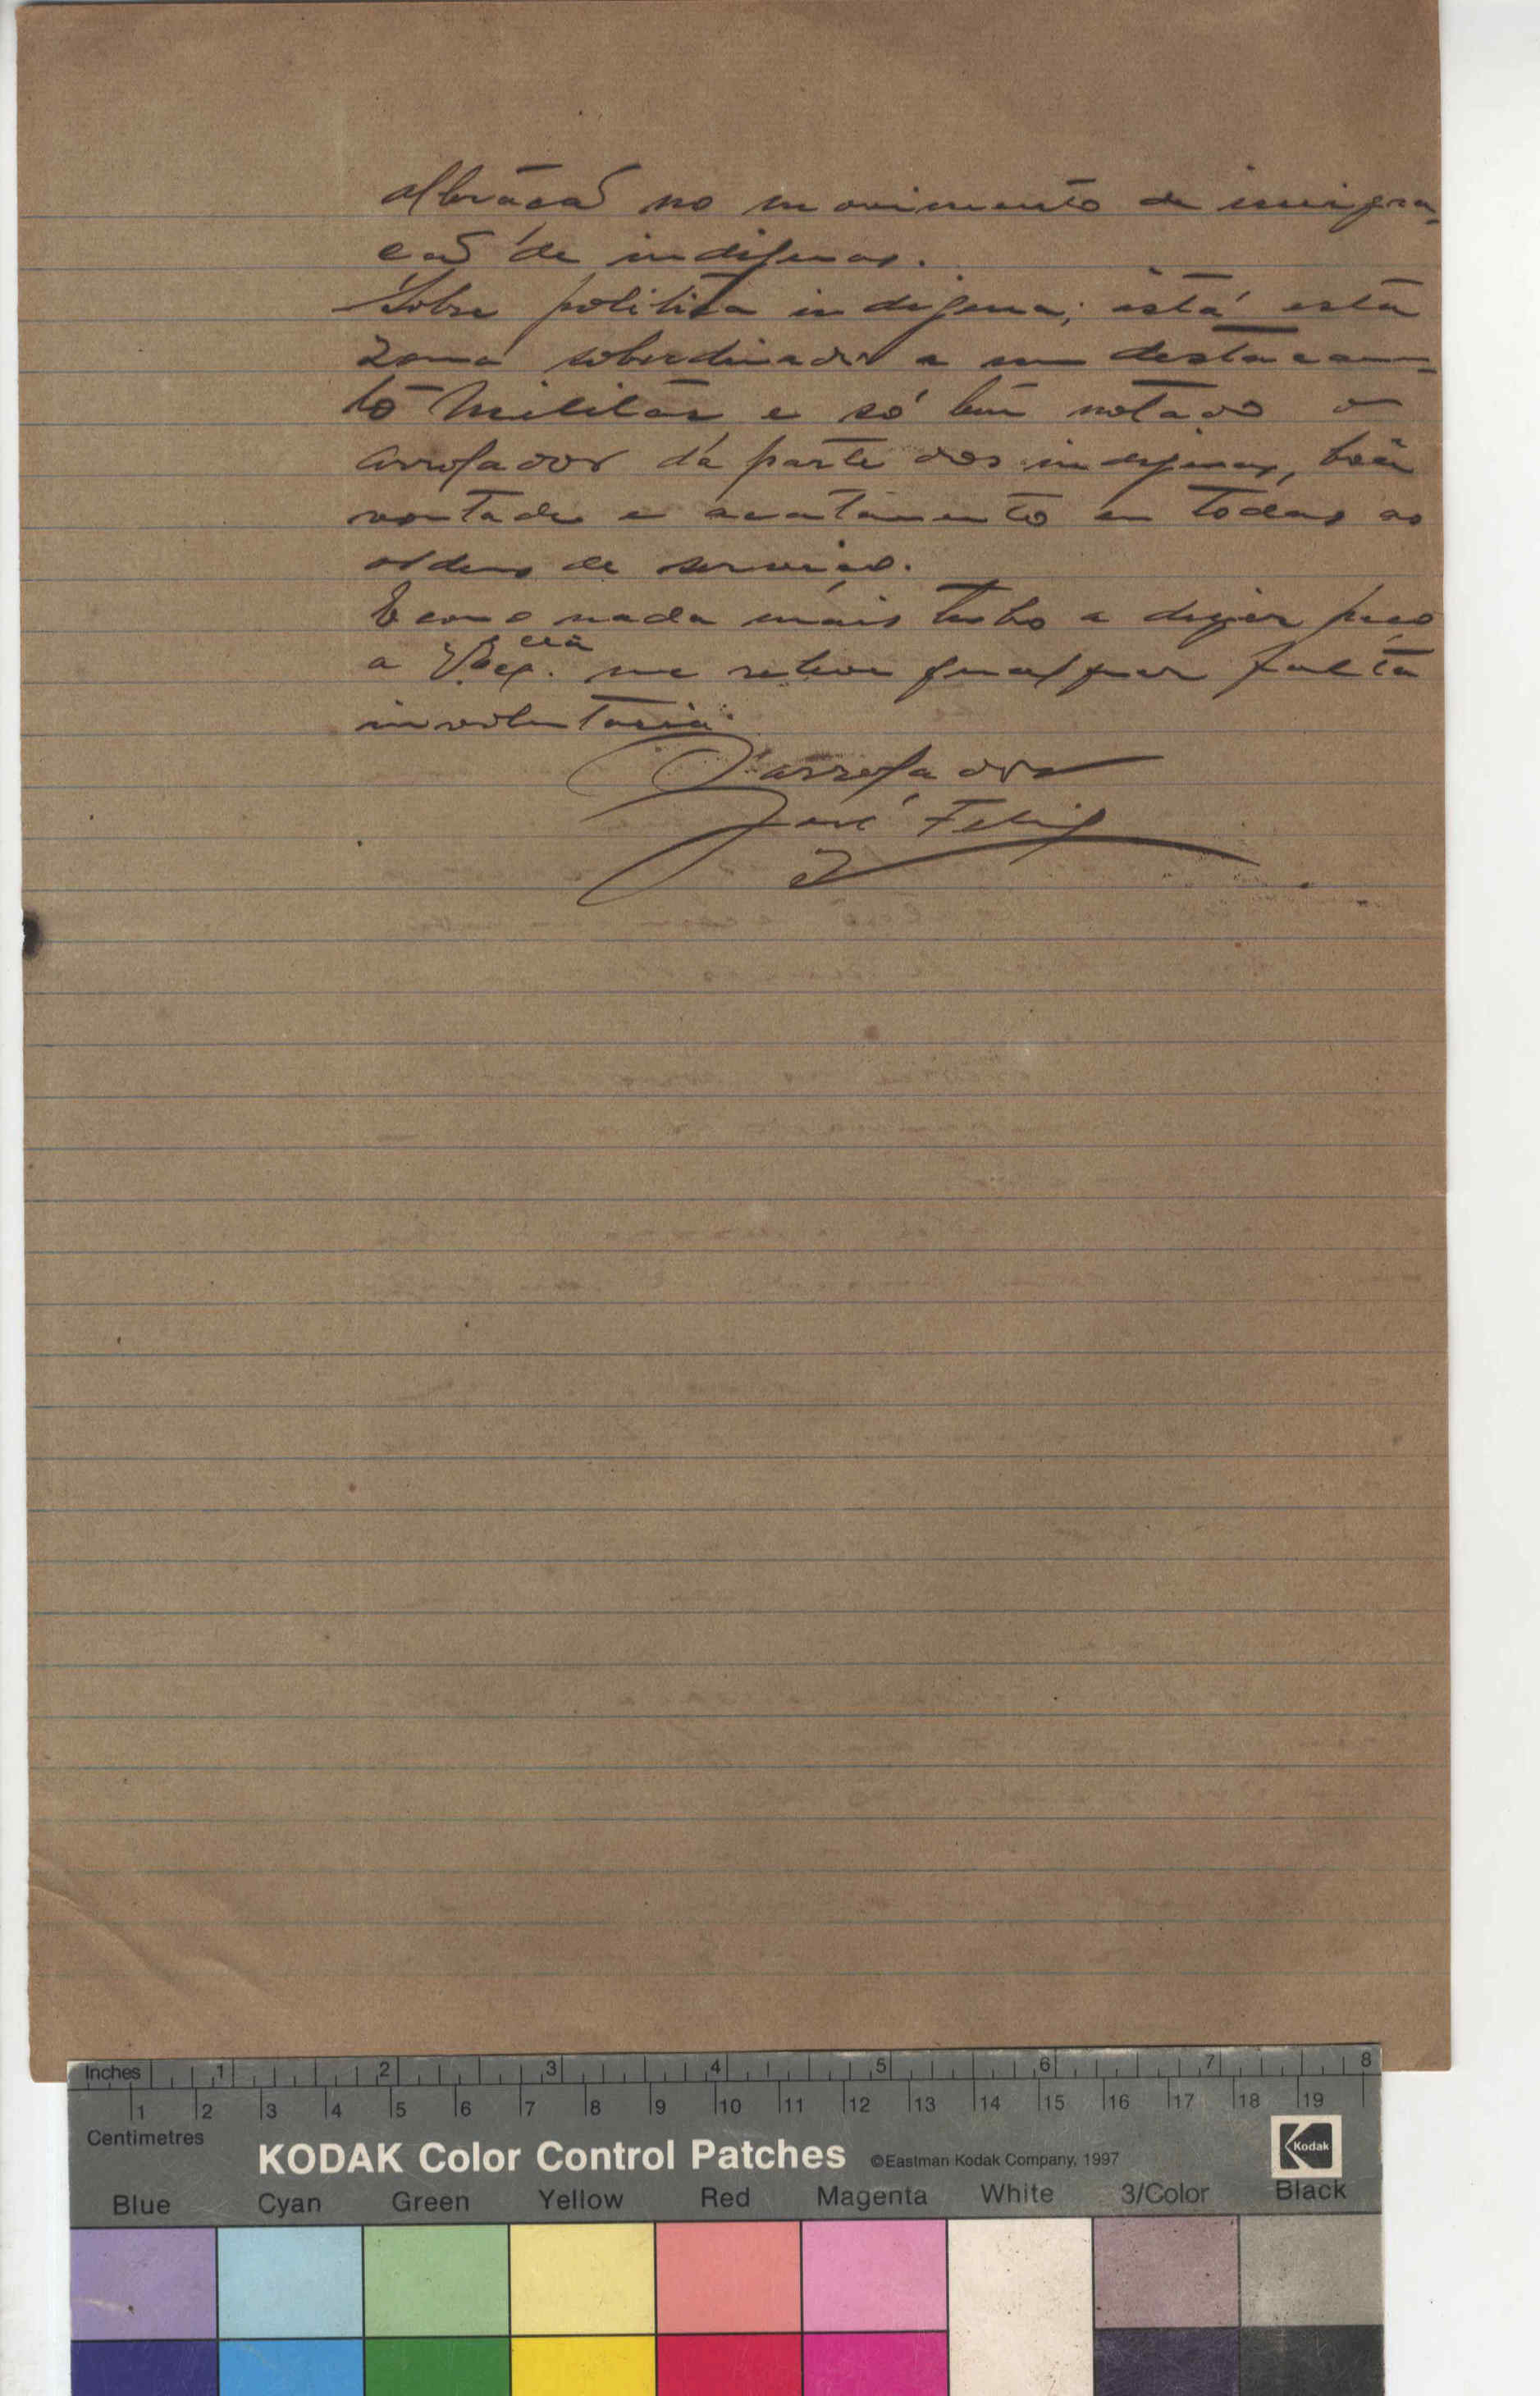 alteração no movimento de emigra-
ção de indigenas.
Sobre politica indigena; está esta
zona soberdinada a um destacamen-
to Militar e só tem notado o
arrolador da parte dos indigenas, bôa
vontade e acatamento em todas as
ordens de serviço.
E como nada mais tenho a dizer peço
a V. Ex.cia me releve qualquer falta
involuntaria.
O arrolador
José Felix
Inches 1 2 3 4 5 6 7 8
1 2 3 4 5 6 7 8 9 10 11 12 13 14 15 16 17 18 19
Centimetres
KODAK Color Control Patches ©Eastman Kodak Company, 1997 Kodak
Blue Cyan Green Yellow Red Magenta White 3/Color Black